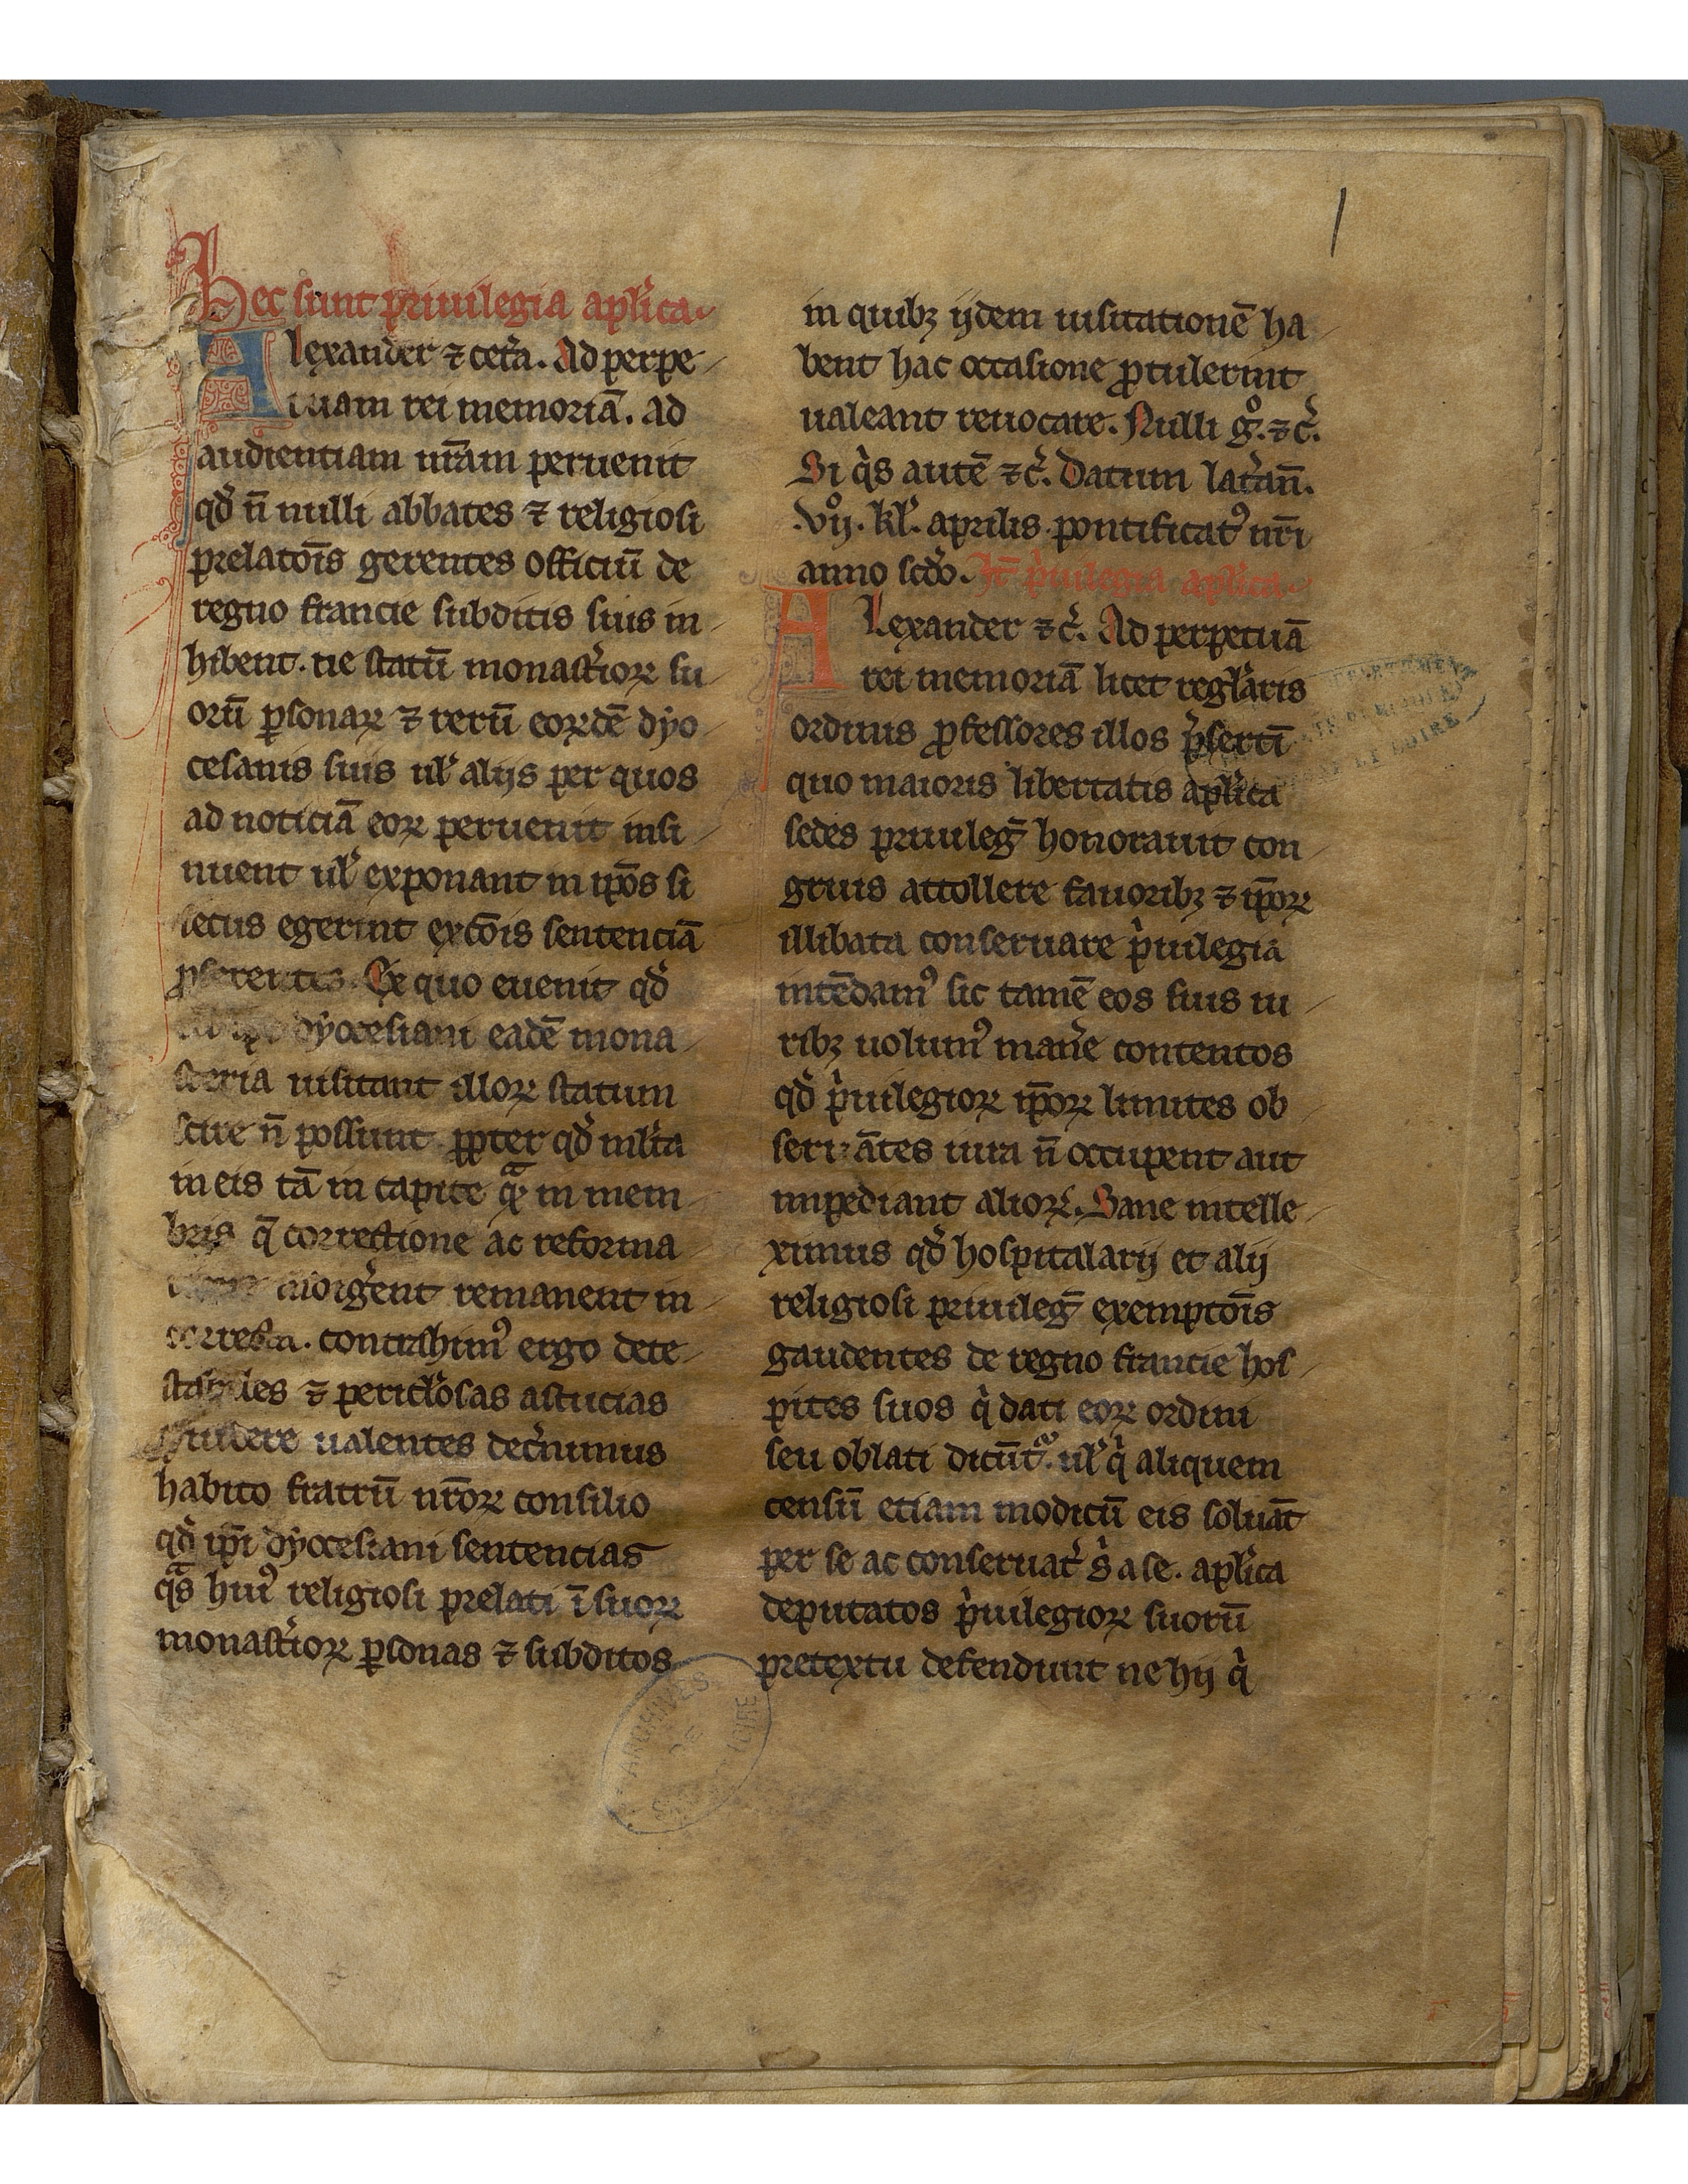 1
Hec sunt priuilegia apl'ica.
Alexander ⁊ cet̾a. Ad perpe
tuam rei memoriā. ad
audientiam nr̄am peruenit
qd̾ n̄ nulli abbates ⁊ religiosi
prelatōis gerentes officiū de
regno francie subditis suis in
hibent. ne statū monast̾ioꝝ su
orū ꝑsonaꝝ ⁊ rerū eoꝝdē dyo
cesanis suis ul̾ alijs per quos
ad noticiā eoꝝ peruenit insi
nuent ul̾ exponant in ip̄os si
secus egerint excōis sentenciā
ꝓferentes. Ex quo euenit qd̾
dyocesiani eadē mona
steria uisitant illoꝝ statum
scire n̄ possunt ꝓpter qd̾ ml̾ta
in eis tā in capite qᷓ in mem
bris q̄ correctione ac reforma
remanent in
correcta. contrahim᷒ ergo dete
stabiles ⁊ pericl̾osas astucias
ualentes dec̾nimus
habito fratrū nr̄oꝝ consilio
qd̾ ip̄i dyocesiani sentencias
qᷓs hui᷒ religiosi prelati ī suoꝝ
monast̾ioꝝ ꝑsonas ⁊ subditos
in quibꝫ ijdem uisitationē ha
bent hac occasione ꝓtulerint
ualeant reuocare. Nulli gͦ. ⁊c̾.
Si qͥs autē ⁊c̾. Datum lat̾an̄.
Vijͦ. kl̾. aprilis pontificat᷒ nr̄i
anno scd̾o. It̄ pͥuilegia apl'ica.
Alexander ⁊c̾. Ad perpetuā
rei memoriā licet regl̾aris
ordinis ꝓfessores illos p̾sertī
quo maioris libertatis apl'ica
sedes priuileg̅ honorauit con
gruis attollere fauoribꝫ ⁊ ip̄oꝝ
illibata conseruare pͥuilegia
intēdam᷒ sic tamē eos suis iu
ribꝫ uolum᷒ man̾e contentos
qd̾ pͥuilegioꝝ ip̄oꝝ limites ob
seruātes iura n̄ occupent aut
impediant alioꝝ. Sane intelle
ximus qd̾ hospitalarij et alij
religiosi priuileg̅ exemptōis
gaudentes de regno francie hos
pites suos qͥ dati eoꝝ ordini
seu oblati dicūt᷑. ul̾ qͥ aliquem
censū etiam modicū eis soluāt
per se ac conseruat̾ s̾ a se. apl'ica
deputatos pͥuilegioꝝ suorū
pretextu defendunt ne hij qͥ
ARCHIVES
DE
LOIRE
DÉPARTEMENT
ET LOIRE